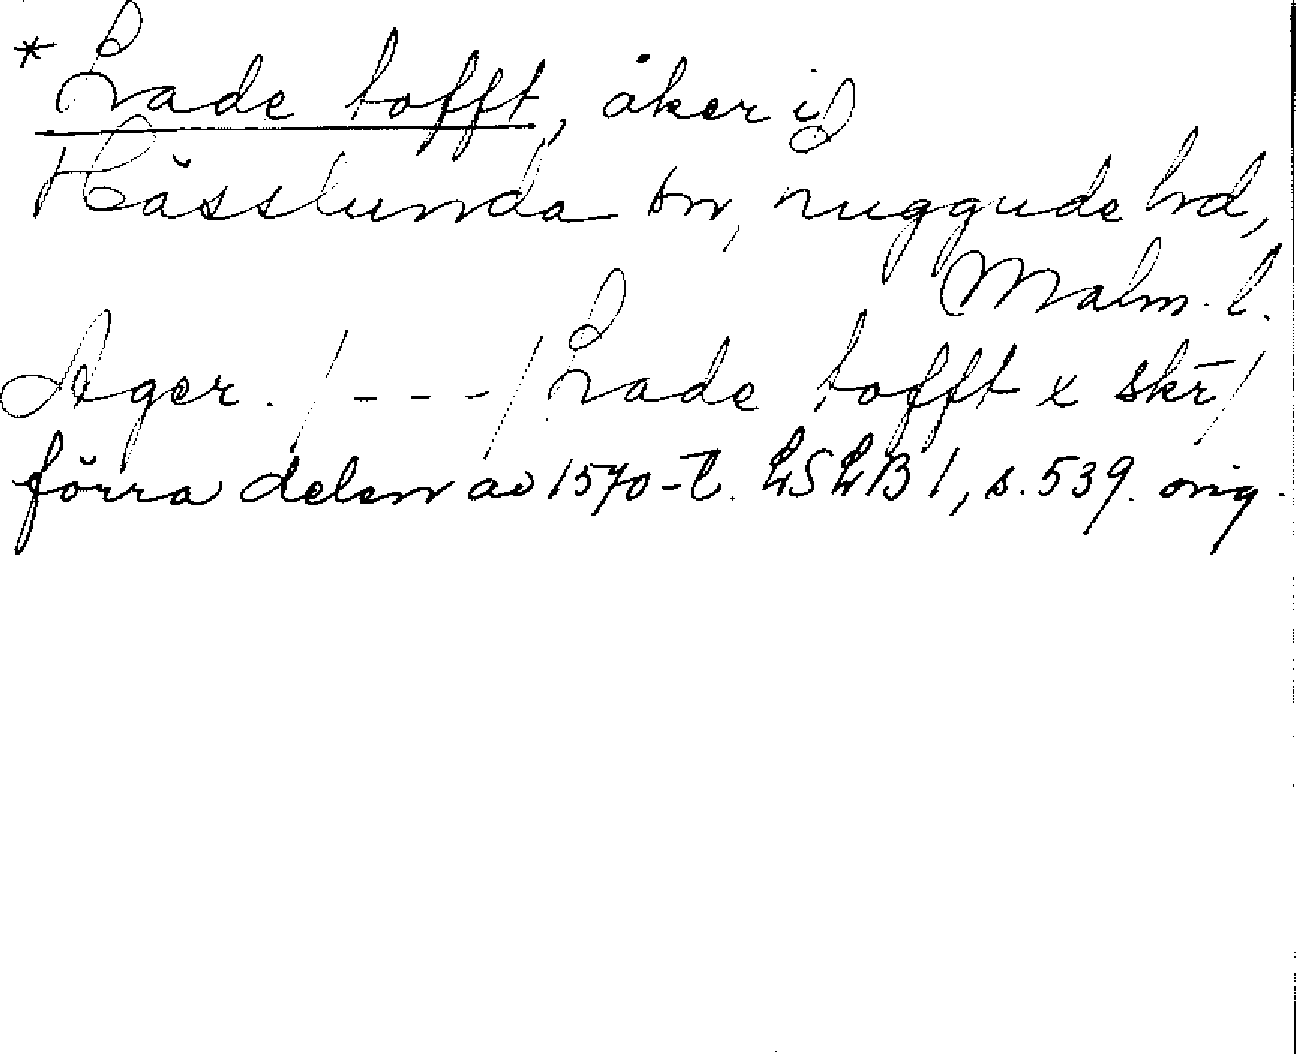 * Lade tofft, åker i
Hässlunda sn, Luggude hd,
Malm. l.
Ager. /---/ Lade tofft x skr/
förra delen av 1570-t. LSLB 1, s. 539. orig.